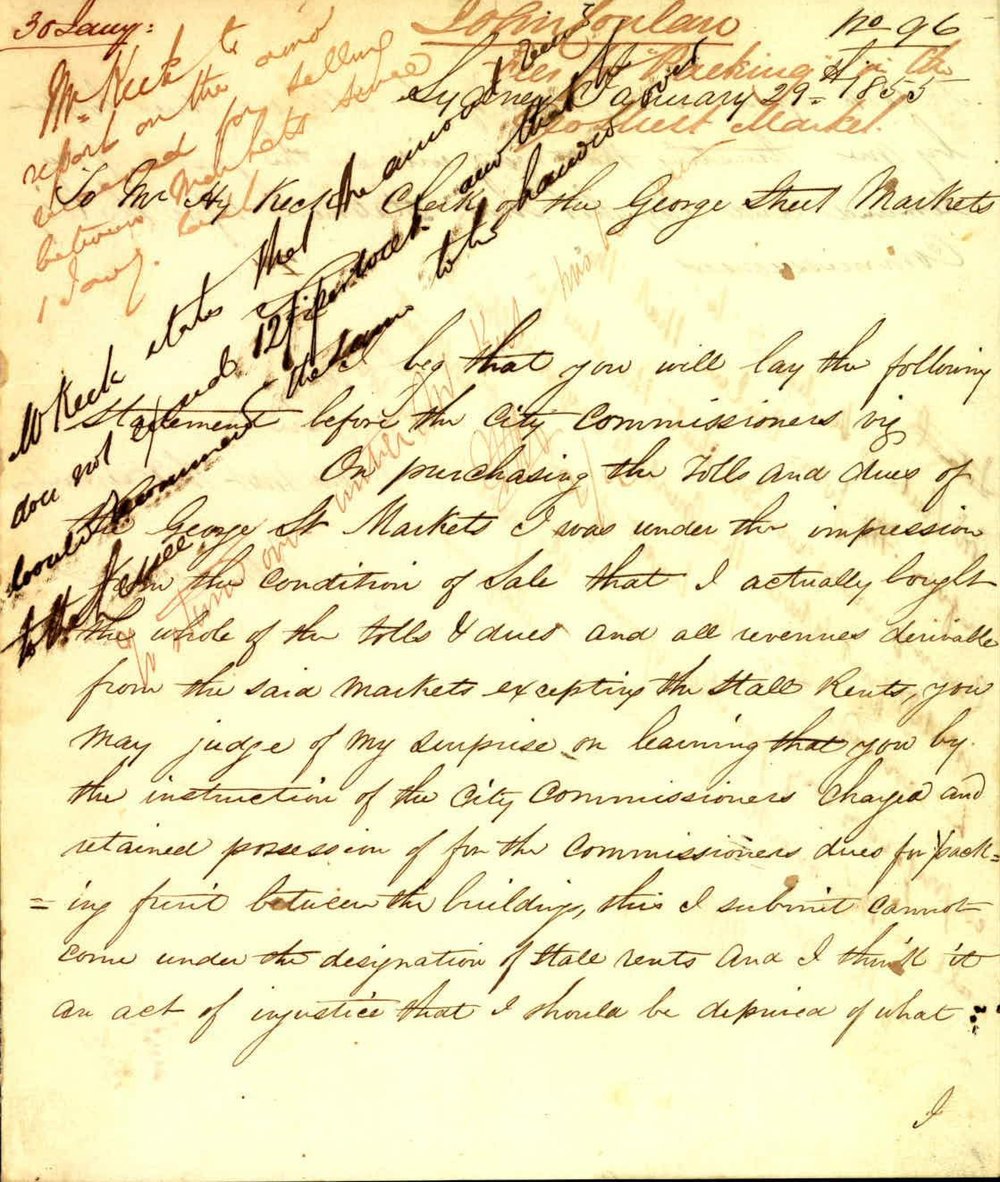 30 Jany:
No 96
John Conlan
Fees "Packing" in the
Market.
Mr. Keck to
report on the
received for selling
between Markets since
1 Jany.
Sydney January 29th 1855
To Mr Hy Keck Clerk of the George Street Markets
Mr Keck states that the amount
does not exceed 12/ per week and that he
would recommend the same to be handed over
to the Lessee
I beg that you will lay the following
Statement before the City Commissioners viz
On purchasing the Tolls and dues of
The George St Markets I was under the impression
from the Condition of Sale that I actually bought
the whole of the tolls & dues and all revenues derivable
from the said Markets excepting the Stall Rents, you
may judge of my surprise on learning that you by
the instruction of the City Commissioners Charged and
retained possession of for the Commissioners dues for pack=
=ing fruit between the buildings, this I submit cannot
come under the designation of Stall rents and I think it
an act of injustice that I should be deprived of what
I